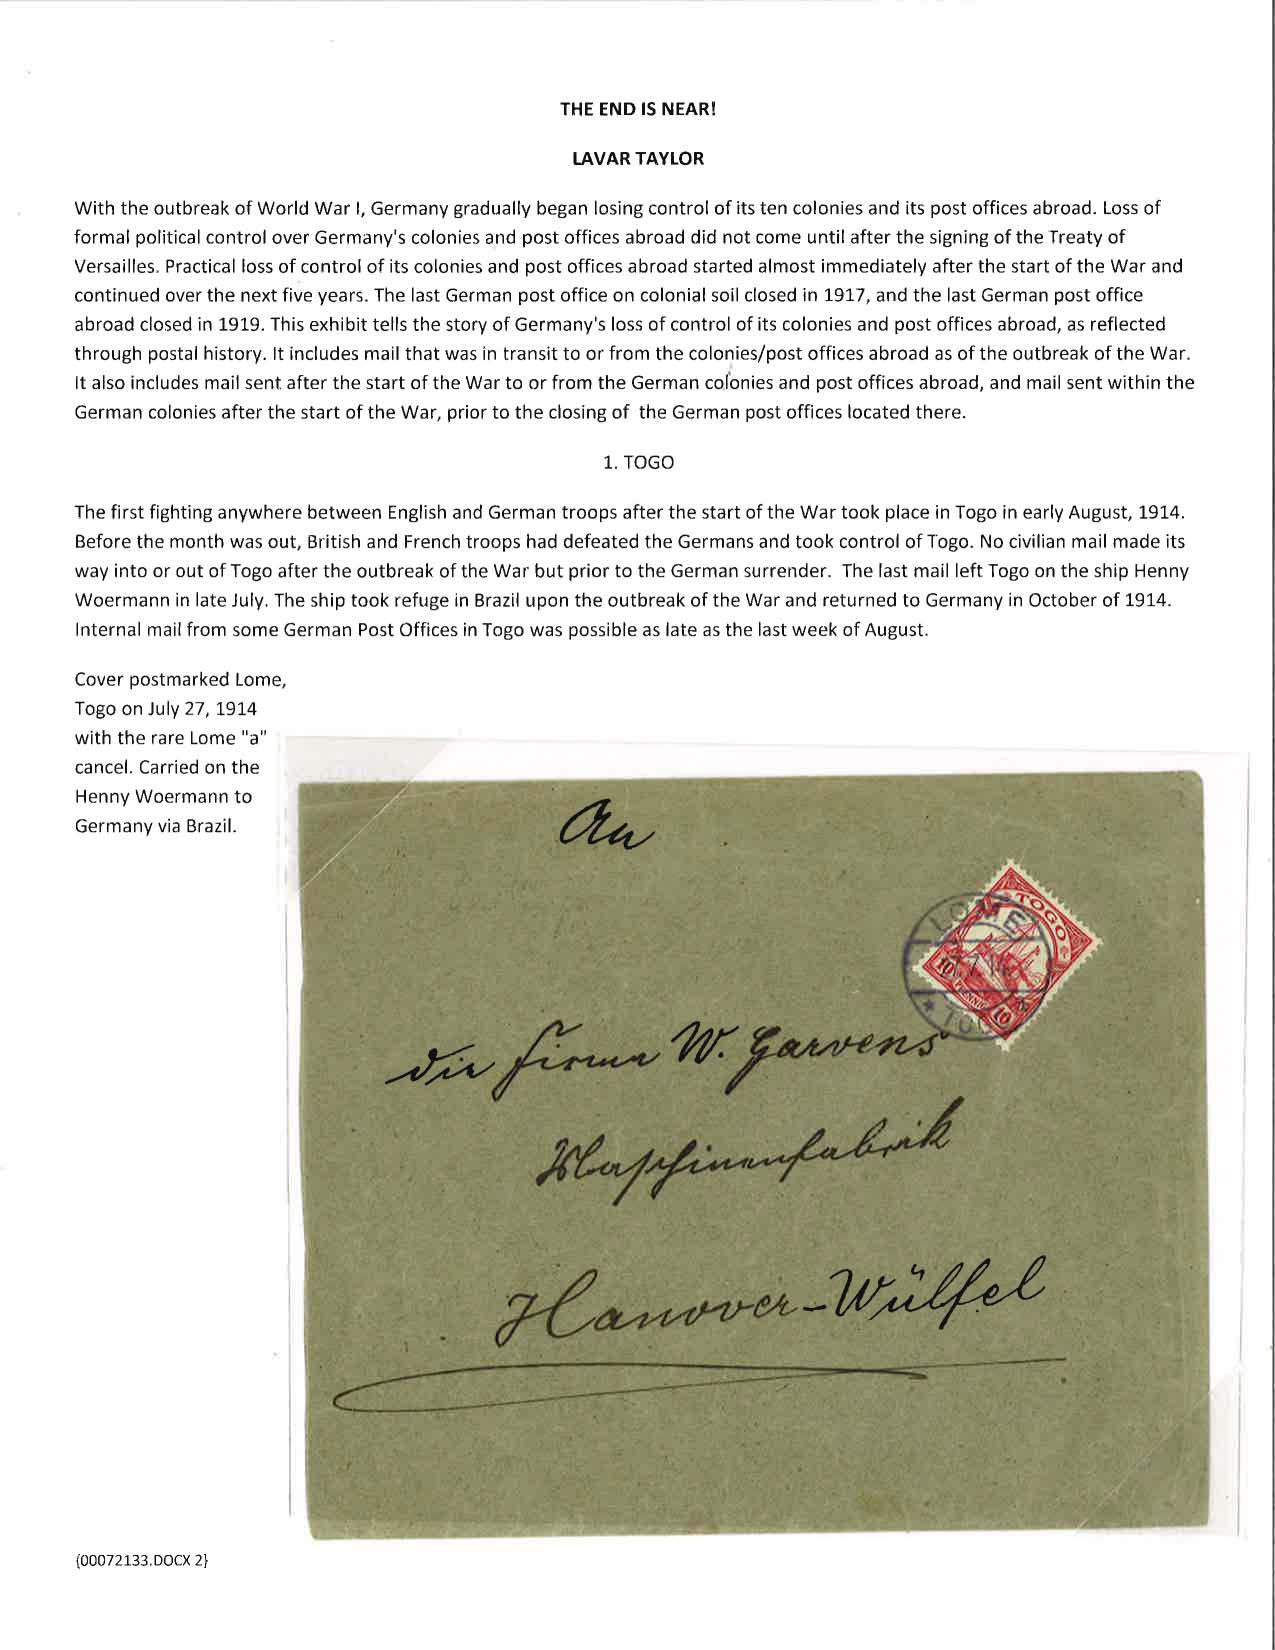 THE END IS NEAR!
LAVAR TAYLOR
With the outbreak of World War I, Germany gradually began losing control of its ten colonies and its post offices abroad. Loss of
formal political control over Germany's colonies and post offices abroad did not come until after the signing of the Treaty of
Versailles. Practical loss of control of its colonies and post offices abroad started almost immediately after the start of the War and
continued over the next five years. The last German post office on colonial soil closed in 1917, and the last German post office
abroad closed in 1919. This exhibit tells the story of Germany's loss of control of its colonies and post offices abroad, as reflected
through postal history. It includes mail that was in transit to or from the colonies/post offices abroad as of the outbreak of the War.
It also includes mail sent after the start of the War to or from the German colonies and post offices abroad, and mail sent within the
German colonies after the start of the War, prior to the closing of the German post offices located there.
1. TOGO
The first fighting anywhere between English and German troops after the start of the War took place in Togo in early August, 1914.
Before the month was out, British and French troops had defeated the Germans and took control of Togo. No civilian mail made its
way into or out of Togo after the outbreak of the War but prior to the German surrender. The last mail left Togo on the ship Henny
Woermann in late July. The ship took refuge in Brazil upon the outbreak of the War and returned to Germany in October of 1914.
Internal mail from some German Post Offices in Togo was possible as late as the last week of August.
Cover postmarked Lome,
Togo on July 27, 1914
with the rare Lome "a"
cancel. Carried on the
Henny Woermann to
Germany via Brazil.
An
TOGO
LOME
10 PFENNIG 10
TOGO
die Firma W. Garvens
Maschinenfabrik
Hanover-Wülfel
{00072133.DOCX 2}